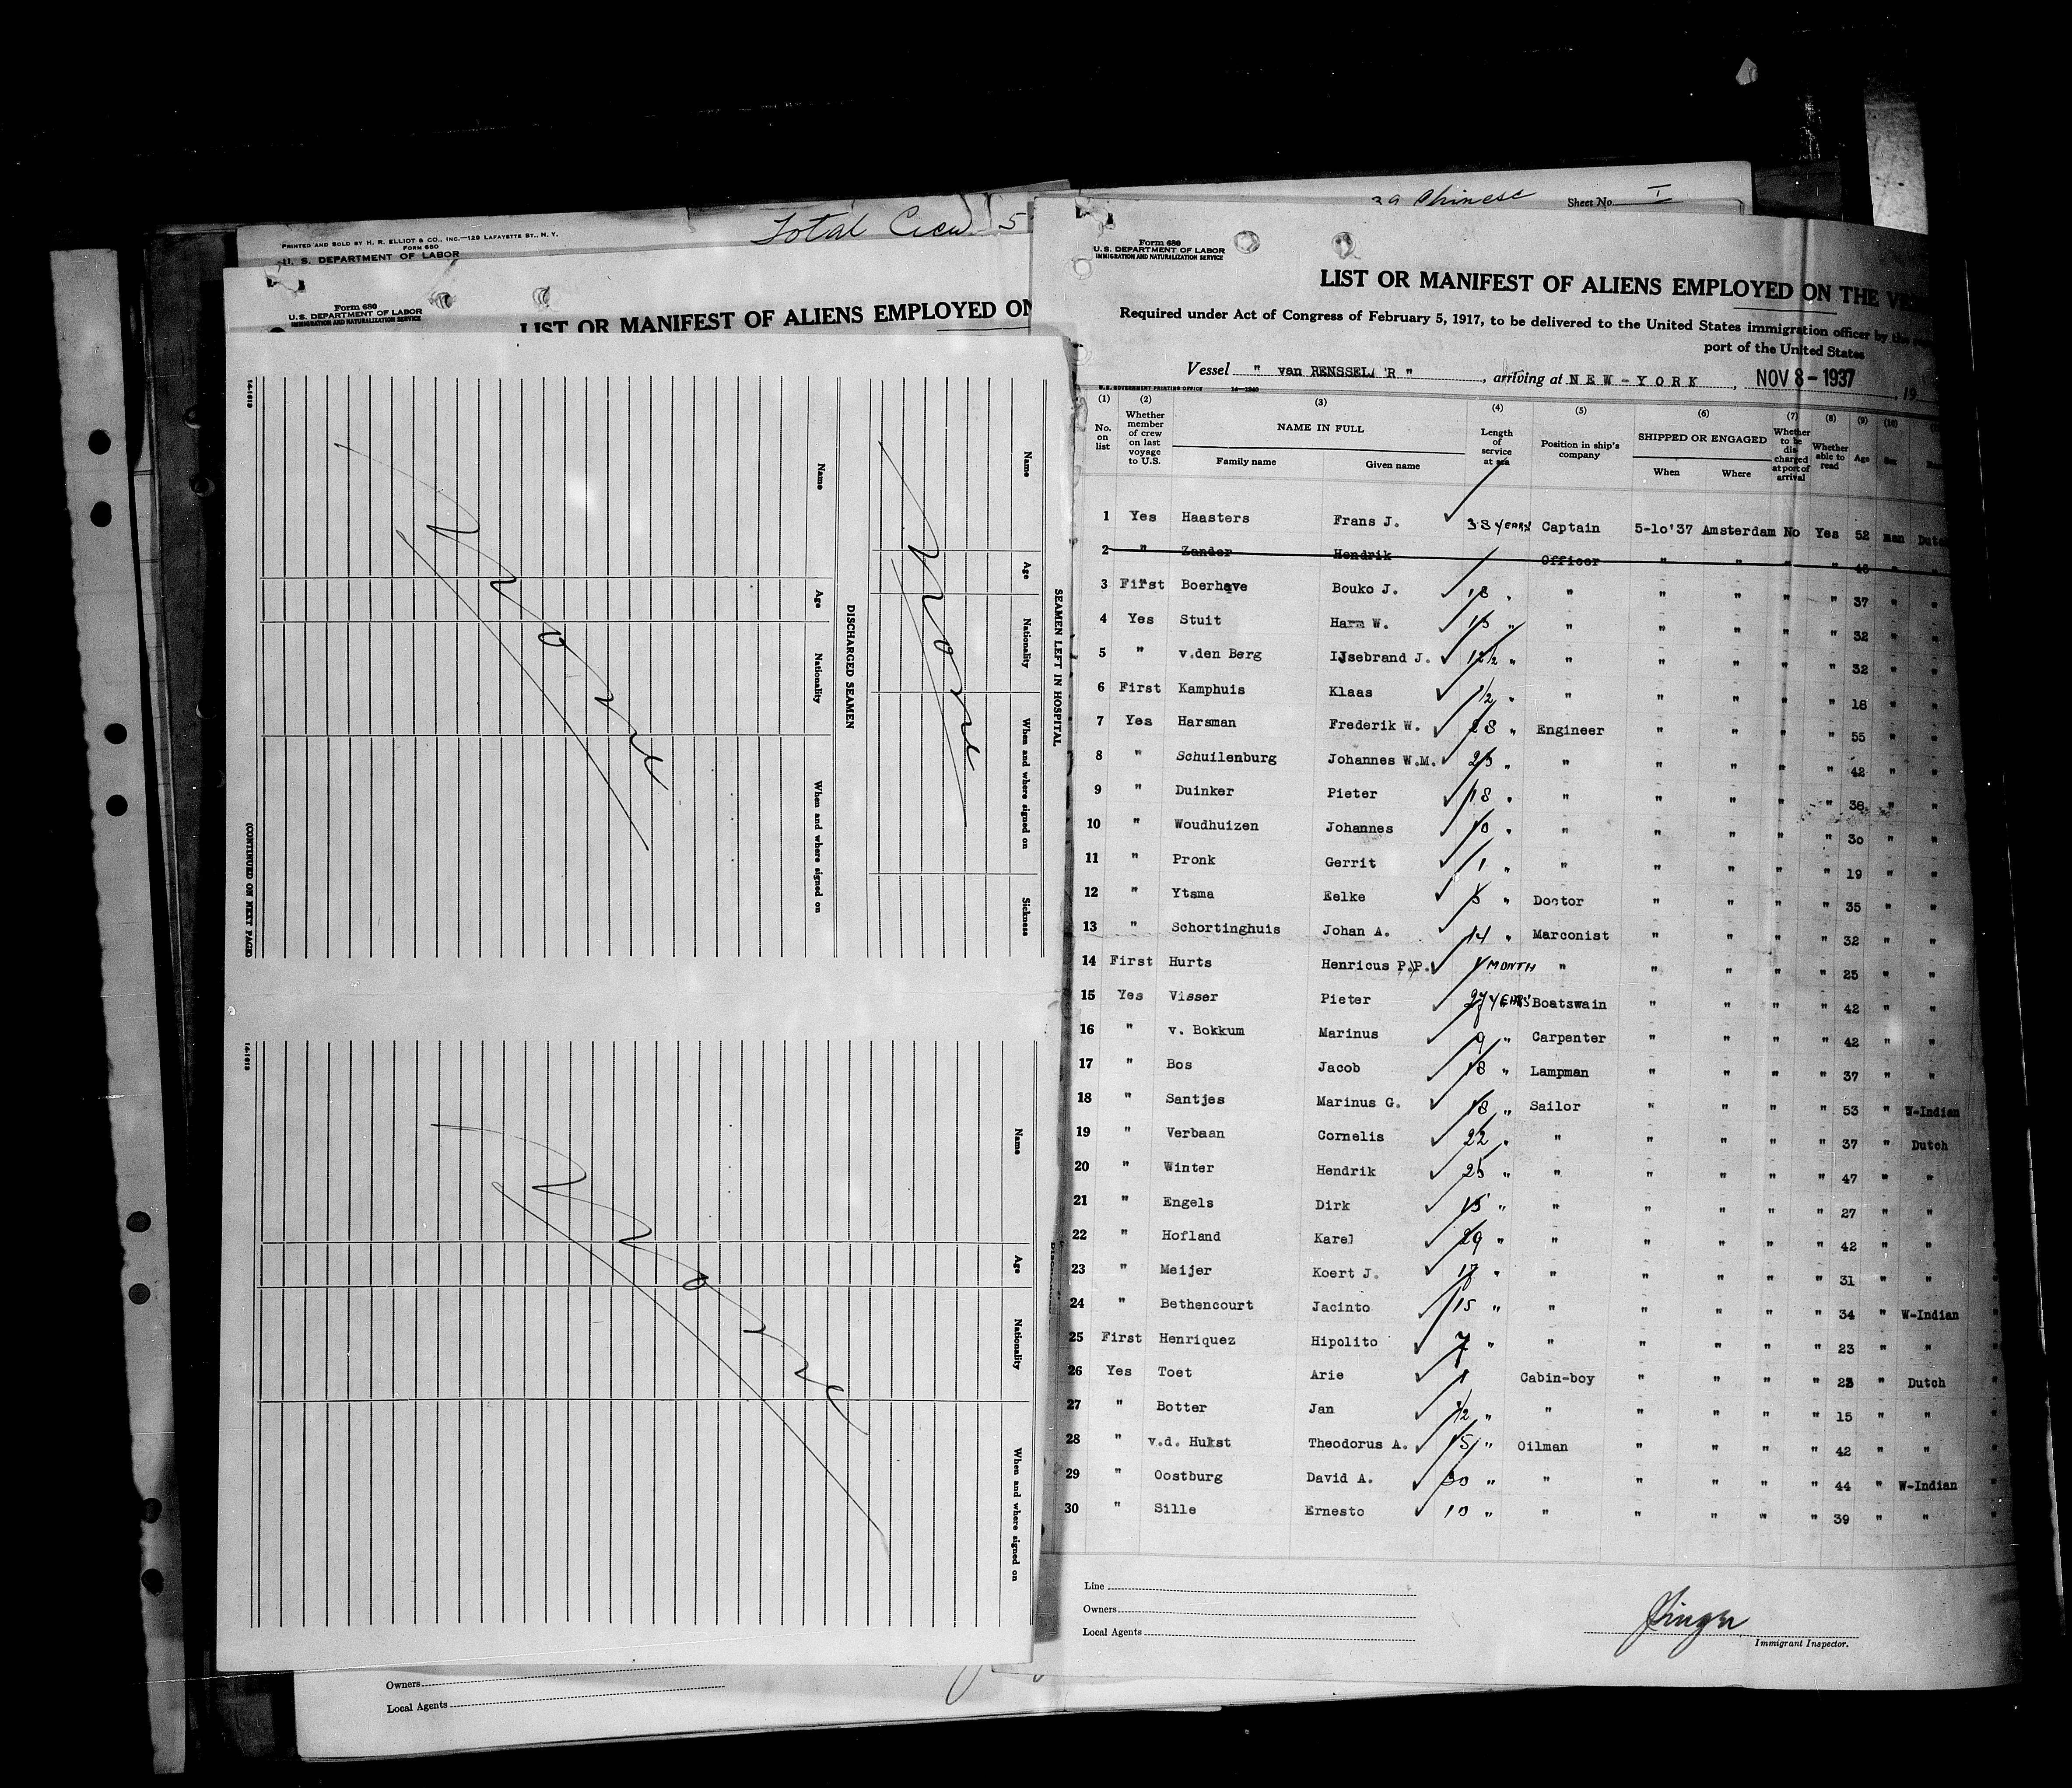 PRINTED AND SOLD BY H. R. ELLIOT & CO., INC.—129 LAFAYETTE ST., N. Y.
Form 680
U. S. DEPARTMENT OF LABOR
Total Crew 5
39 Chinese
Sheet No. I
Form 680
U. S. DEPARTMENT OF LABOR
IMMIGRATION AND NATURALIZATION SERVICE
LIST OR MANIFEST OF ALIENS EMPLOYED ON
14-1618
Name Age Nationality When and where signed on
DISCHARGED SEAMEN
None
(CONTINUED ON NEXT PAGE)
SEAMEN LEFT IN HOSPITAL
Name Age Nationality When and where signed on Sickness
None
14-1618
Name Age Nationality When and where signed on
None
Owners
Local Agents
Form 680
U. S. DEPARTMENT OF LABOR
IMMIGRATION AND NATURALIZATION SERVICE
LIST OR MANIFEST OF ALIENS EMPLOYED ON THE VE
Required under Act of Congress of February 5, 1917, to be delivered to the United States immigration officer by the
port of the United States
Vessel " van RENSSEL R " , arriving at NEW-YORK , NOV 8 - 1937 , 19
U. S. GOVERNMENT PRINTING OFFICE 14-1240
(1) (2) (3) (4) (5) (6) (7) (8) (9) (10)
No. on list Whether member of crew on last voyage to U.S. NAME IN FULL Family name Given name Length of service at sea Position in ship's company SHIPPED OR ENGAGED When Where Whether to be discharged at port of arrival Whether able to read Age Sex
1 Yes Haasters Frans J. 33 YEARS Captain 5-10'37 Amsterdam No Yes 52 man Dutch
2 " Zander Hendrik Officer " " " " 46 " "
3 First Boerhave Bouko J. 18 " " " " " " 37 " "
4 Yes Stuit Harm W. 15 " " " " " " 32 " "
5 " v.den Berg IJsebrand J. 12½ " " " " " " 32 " "
6 First Kamphuis Klaas ½ " " " " " " 18 " "
7 Yes Harsman Frederik W. 28 " Engineer " " " " 55 " "
8 " Schuilenburg Johannes W.M. 23 " " " " " " 42 " "
9 " Duinker Pieter 18 " " " " " " 38 " "
10 " Woudhuizen Johannes 10 " " " " " " 30 " "
11 " Pronk Gerrit 1 " " " " " " 19 " "
12 " Ytsma Eelke 5 " Doctor " " " " 35 " "
13 " Schortinghuis Johan A. 14 " Marconist " " " " 32 " "
14 First Hurts Henricus P.P. 1 MONTH " " " " " 25 " "
15 Yes Visser Pieter 27 YEARS Boatswain " " " " 42 " "
16 " v. Bokkum Marinus 9 " Carpenter " " " " 42 " "
17 " Bos Jacob 18 " Lampman " " " " 37 " "
18 " Santjes Marinus G. 18 " Sailor " " " " 53 " W-Indian
19 " Verbaan Cornelis 22 " " " " " " 37 " Dutch
20 " Winter Hendrik 25 " " " " " " 47 " "
21 " Engels Dirk 15 " " " " " " 27 " "
22 " Hofland Karel 29 " " " " " " 42 " "
23 " Meijer Koert J. 17 " " " " " " 31 " "
24 " Bethencourt Jacinto 15 " " " " " " 34 " W-Indian
25 First Henriquez Hipolito 7 " " " " " " 23 " "
26 Yes Toet Arie 1 " Cabin-boy " " " " 23 " Dutch
27 " Botter Jan ½ " " " " " " 15 " "
28 " v.d. Hulst Theodorus A. 15 " Oilman " " " " 42 " "
29 " Oostburg David A. 30 " " " " " " 44 " W-Indian
30 " Sille Ernesto 10 " " " " " " 39 " "
Line
Owners
Local Agents
Immigrant Inspector.